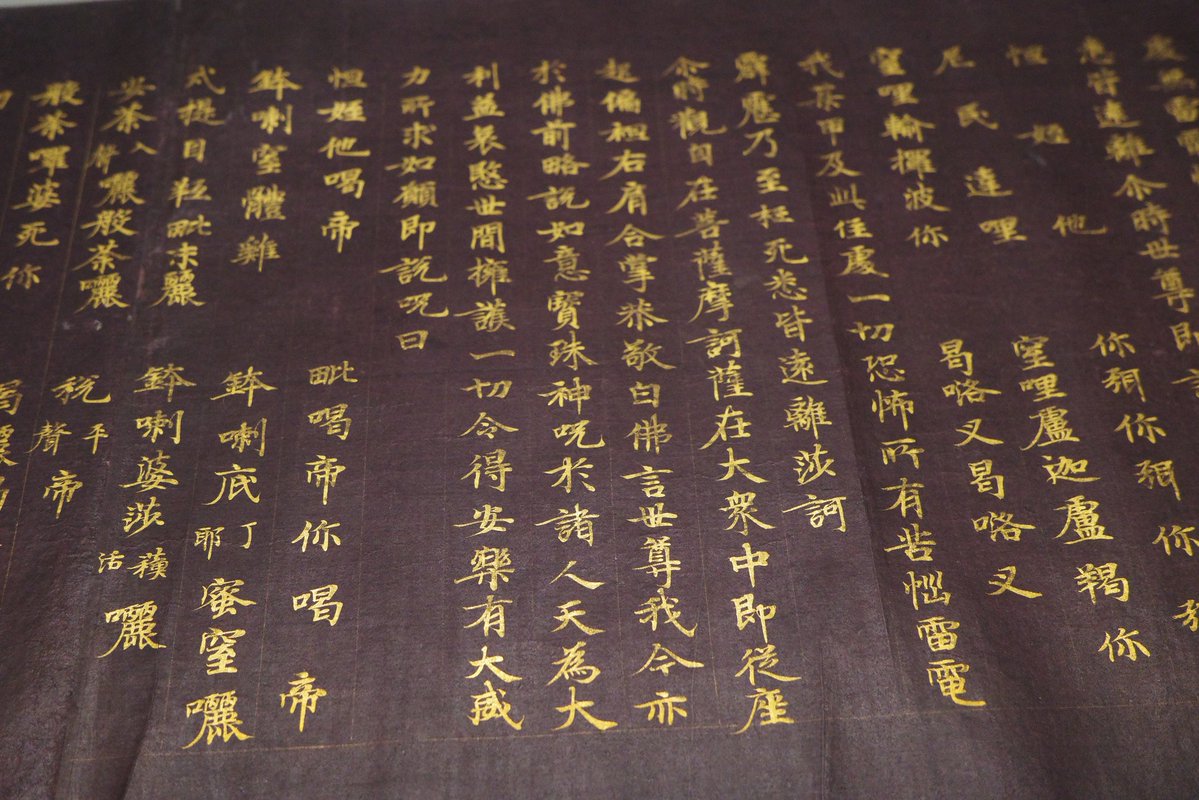 處無雷
悉皆遠離尒時世尊即
怛姪他　你弭你弭你弭
尼民達哩　窒哩盧迦盧羯你
窒哩輸攞波你　曷咯叉曷咯叉
我某甲及此住處一切恐怖所有苦惱雷電
霹靂乃至枉死悉皆遠離莎訶
尒時觀自在菩薩摩訶薩在大衆中即從座
起偏袒右肩合掌恭敬白佛言世尊我今亦
於佛前略說如意寶珠神呪於諸人天為大
利益哀愍世間擁護一切令得安樂有大威
力所求如願即說呪曰
怛姪他喝帝　毗喝帝你喝帝
鉢喇窒體雞　鉢喇底丁耶蜜窒囇
戍提目羝毗末麗　鉢喇婆莎活囇
安荼入聲囇般荼囇　稅平聲帝
般荼囉婆死你　曷